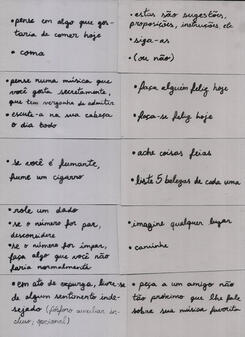 • pense em algo que gos-
taria de comer hoje
• coma
• estas são sugestões,
proposições, instruções, etc
• siga-as
• (ou não)
• pense numa música que
você gosta secretamente,
que tem vergonha de admitir
• escute-a na sua cabeça
o dia todo
• faça alguém feliz hoje
• faça-se feliz hoje
• se você é fumante,
fume um cigarro
• ache coisas feias
• liste 5 belezas de cada uma
• role um dado
• se o número for par,
desconsidere
• se o número for impar,
faça algo que você não
faria normalmente
• imagine qualquer lugar
• caminhe
• em ato de expurgo, livre-se
de algum sentimento inde-
sejado (fósforo auxiliar in-
cluso; opcional)
• peça a um amigo não
tão próximo que lhe fale
sobre sua música favorita